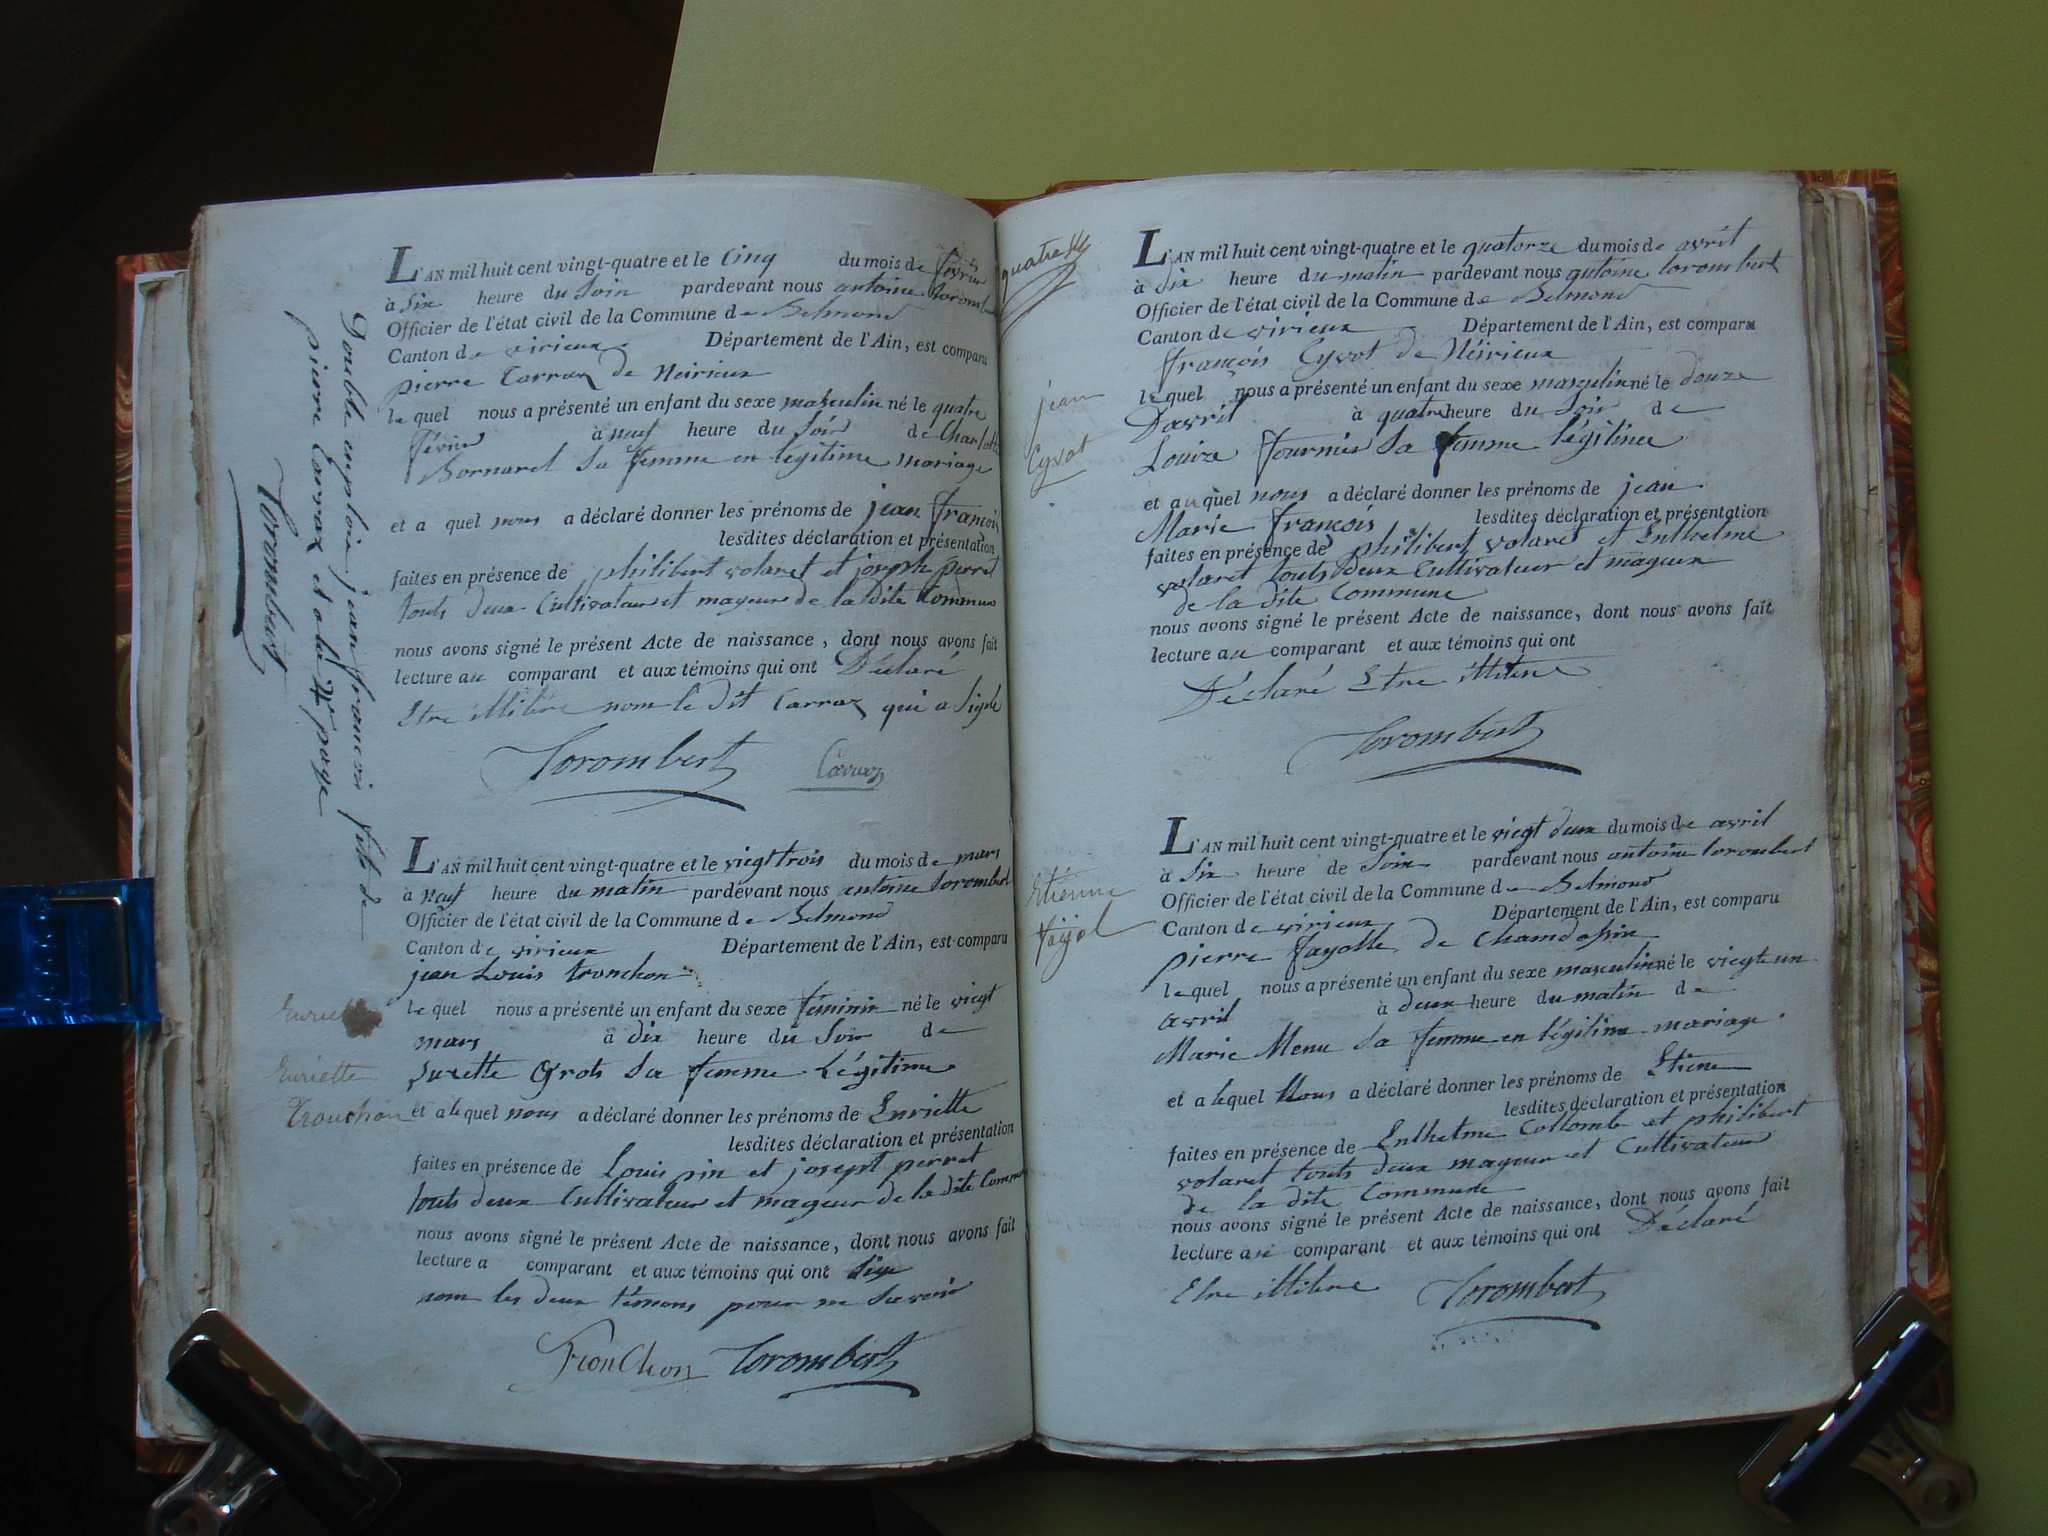 Double emploie jean francois fils de
pierre Carraz et a la 4e page
Torombert
L'AN mil huit cent vingt-quatre et le Cinq du mois de fevrier
à Six heure du Soir pardevant nous antoine torombert
Officier de l'état civil de la Commune de Belmond
Canton de virieux Département de l'Ain, est comparu
pierre Carraz de Neirieux
le quel nous a présenté un enfant du sexe masculin né le quatre
fevier à neuf heure du Soir de Charlotte
Bornarel Sa femme en legitime mariage
et a quel nous a déclaré donner les prénoms de jean françois
lesdites déclaration et présentation
faites en présence de philibert volaret et joseph perret
touts deux Cultivateur et mageur de la dite Commune
nous avons signé le présent Acte de naissance, dont nous avons fait
lecture au comparant et aux témoins qui ont Déclaré
Etre illitére nom le dit Carraz qui a Signé
Torombert Carraz
L'AN mil huit cent vingt-quatre et le viegt trois du mois de mars
à neuf heure du matin pardevant nous antoine torombert
Officier de l'état civil de la Commune de Belmond
Canton de virieux Département de l'Ain, est comparu
jean Louis tronchon
le quel nous a présenté un enfant du sexe féminin né le viegt
mars à dix heure du Soir de
Surette Grots Sa femme Légitime
Enriette
Tronchon
et a le quel nous a déclaré donner les prénoms de Enriette
lesdites déclaration et présentation
faites en présence de Louis pin et josept perret
touts deux Cultivateur et mageur de la dite Commune
nous avons signé le présent Acte de naissance, dont nous avons fait
lecture a comparant et aux témoins qui ont Signe
nom les deux témons pour ne Savoir
TronChon Torombert
quatre
L'AN mil huit cent vingt-quatre et le quatorze du mois de avril
à dix heure du matin pardevant nous antoine torombert
Officier de l'état civil de la Commune de Belmond
Canton de virieux Département de l'Ain, est comparu
françois Cyvot de Néirieux
jean
Cyvot
le quel nous a présenté un enfant du sexe masculin né le douze
Davril à quatre heure du Soir de
Louize fournier Sa femme légitime
et au quel nous a déclaré donner les prénoms de jean
Marie françois lesdites déclaration et présentation
faites en présence de philibert volaret et Enthelme
volaret touts deux Cultivateur et mageur
de la dite Commune
nous avons signé le présent Acte de naissance, dont nous avons fait
lecture au comparant et aux témoins qui ont
Déclaré Etre illitere
Torombert
L'AN mil huit cent vingt-quatre et le viegt deux du mois de avril
à Six heure de Soir pardevant nous antoine torombert
Officier de l'état civil de la Commune de Belmond
Canton de virieux Département de l'Ain, est comparu
pierre fayolle de Chamdossin
Etienne
fayol
le quel nous a présenté un enfant du sexe masculin né le viegt un
avril à deux heure du matin de
Marie Menu Sa femme en légitime mariage
et a lequel Nous a déclaré donner les prénoms de Etiene
lesdites déclaration et présentation
faites en présence de Enthelme Collomb et philibert
volaret touts deux mageur et Cultivateur
de la dite Commune
nous avons signé le présent Acte de naissance, dont nous avons fait
lecture au comparant et aux témoins qui ont Déclaré
Etre illitere Torombert